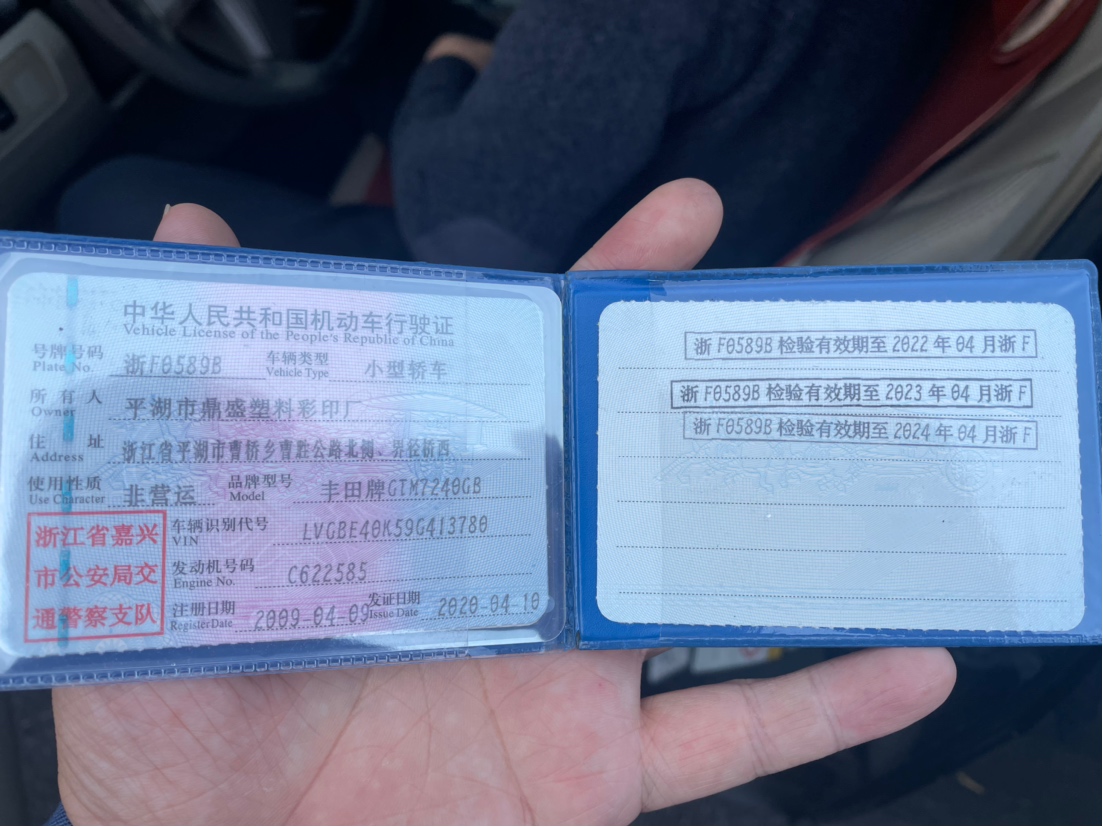 中华人民共和国机动车行驶证
Vehicle License of the People's Republic of China
号牌号码 浙F0589B 车辆类型 小型轿车
Plate No. Vehicle Type
所有人 平湖市鼎盛塑料彩印厂
Owner
住址 浙江省平湖市曹桥乡曹胜公路北侧、界径桥西
Address
使用性质 非营运 品牌型号 丰田牌GTM7240GB
Use Character Model
浙江省嘉兴
市公安局交
通警察支队
车辆识别代号 LVGBE40K59G413780
VIN
发动机号码 C622585
Engine No.
注册日期 2009-04-09 发证日期 2020-04-10
Register Date Issue Date
浙F0589B检验有效期至2022年04月浙F
浙F0589B检验有效期至2023年04月浙F
浙F0589B检验有效期至2024年04月浙F